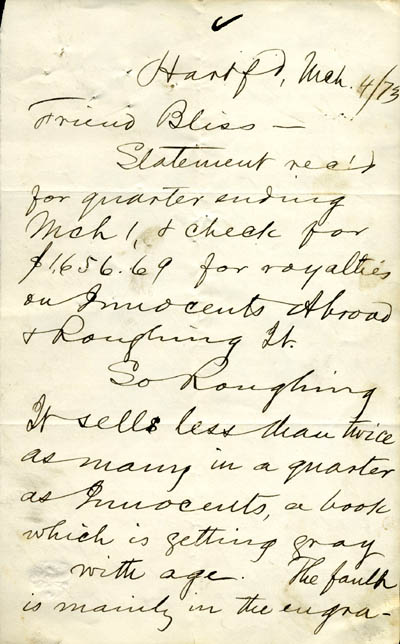 Hartfd, Mch. 4/73
Friend Bliss —
Statement rec'd
for quarter ending
Mch 1, & check for
$1,656.69 for royalties
on Innocents Abroad
& Roughing It.
So Roughing
It sells less than twice
as many in a quarter
as Innocents, a book
which is getting gray
with age. The fault
is mainly in the engra-